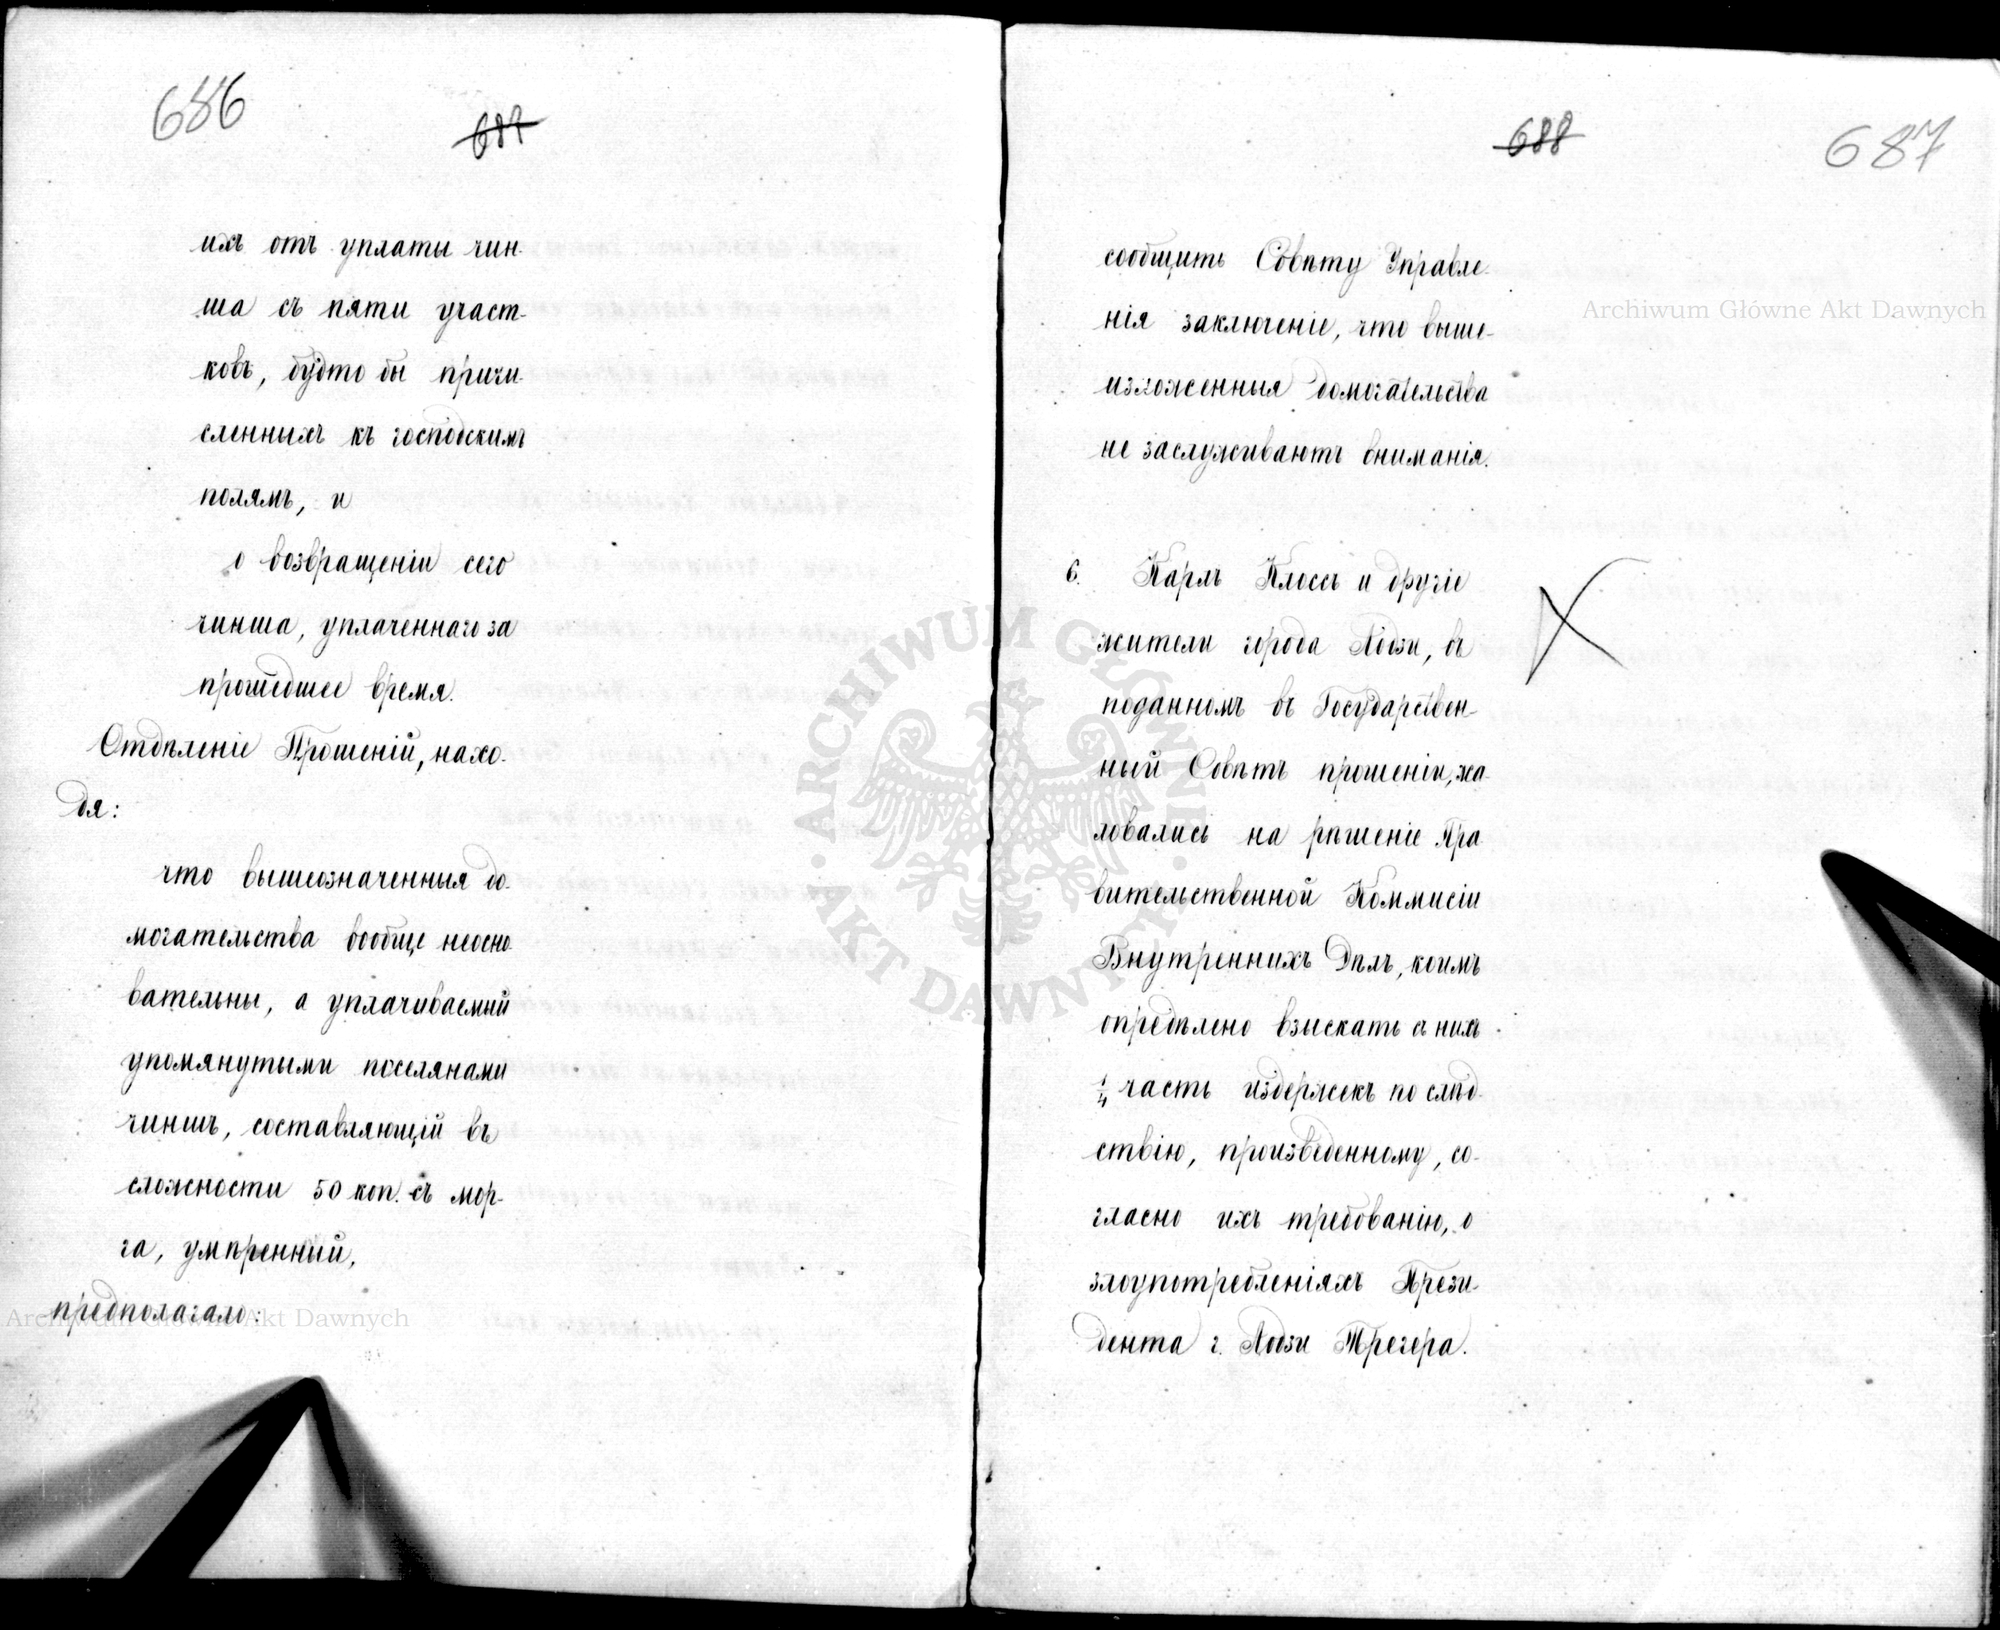 686
687
ихъ отъ уплаты чин-
ша съ пяти участ-
ковъ, будто бы причи-
сленныхъ къ господскимъ
полямъ, и
о возвращеніи сего
чинша, уплаченнаго за
прошедшее время.
Отдѣленіе Прошеній, нахо-
дя:
что вышеозначенныя до-
могательства вообще неосно-
вательны, а уплачиваемый
упомянутыми поселянами
чиншъ, составляющій въ
сложности 50 коп. съ мор-
га, умѣренный,
предполагало:
Archiwum Główne Akt Dawnych
688
687
сообщить Совѣту Управле-
нія заключеніе, что выше-
Archiwum Główne Akt Dawnych
изложенныя домогательства
не заслуживаютъ вниманія.
6. Карлъ Клоссъ и другіе
жители города Лодзи, въ
поданномъ въ Государствен-
ный Совѣтъ прошеніи, жа-
ловались на рѣшеніе Пра-
вительственной Коммисіи
Внутреннихъ Дѣлъ, коимъ
опредѣлено взыскать съ нихъ
1/4 часть издержекъ по слѣд-
ствію, произведенному, со-
гласно ихъ требованію, о
злоупотребленіяхъ Прези-
дента г. Лодзи Трегера.
ARCHIWUM GŁÓWNE AKT DAWNYCH